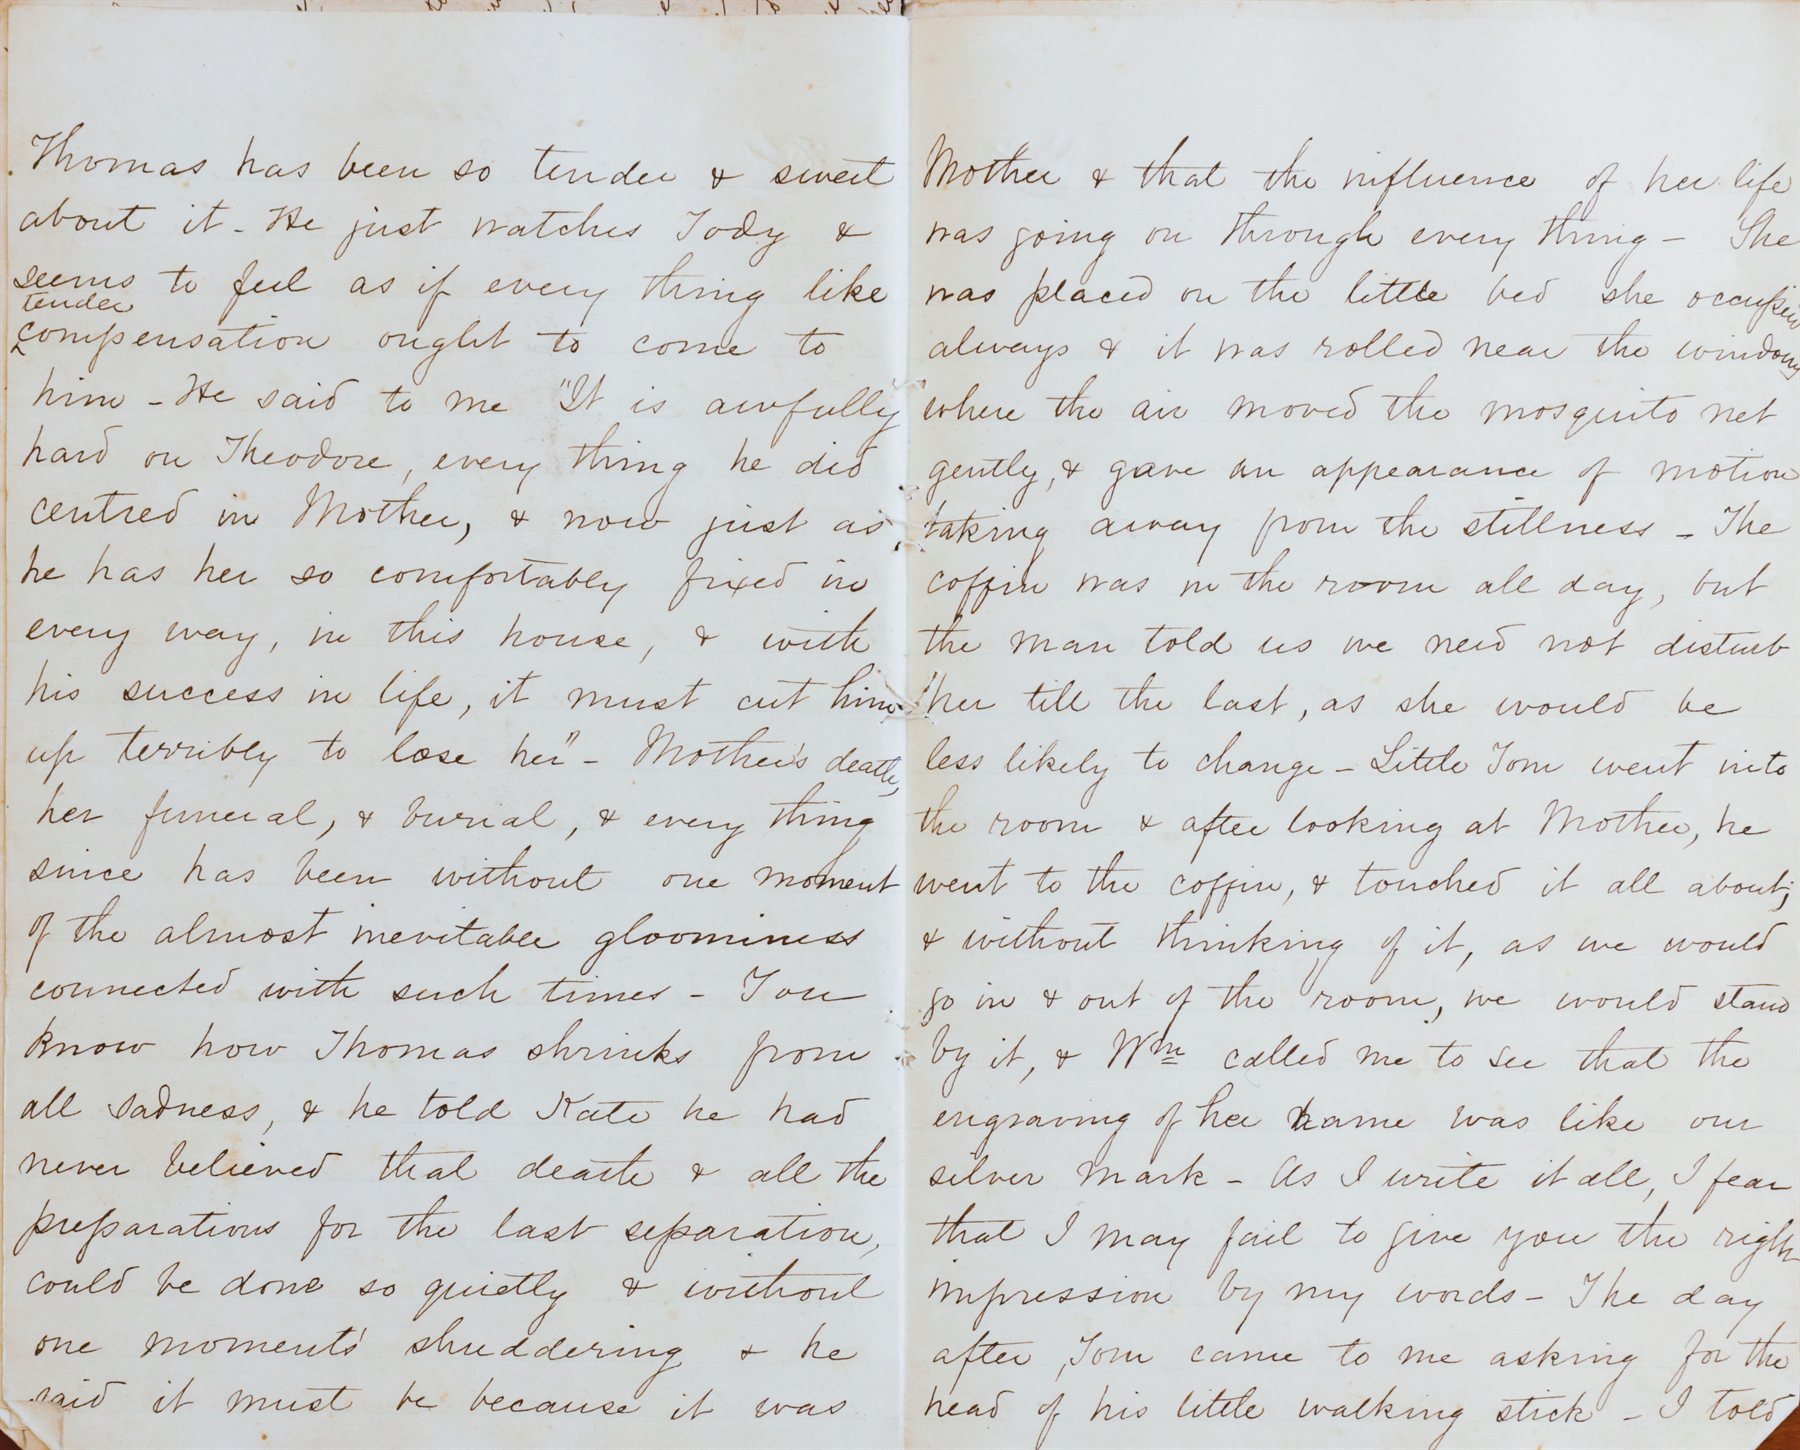 Thomas has been so tender & sweet
about it - He just watches Tody &
seems to feel as if every thing like
tender
compensation ought to come to
him - He said to me "It is awfully
hard on Theodore, every thing he did
centred in Mother, & now just as
he has her so comfortably fixed in
every way, in this house, & with
his success in life, it must cut him
up terribly to lose her" - Mother's death,
her funeral, & burial, & every thing
since has been without one moment
of the almost inevitable gloominess
connected with such times - You
know how Thomas shrinks from
all sadness, & he told Kate he had
never believed that death & all the
preparations for the last separation,
could be done so quietly & without
one moments' shuddering & he
said it must be because it was
Mother & that the influence of her life
was going on through every thing - She
was placed on the little bed she occupied
always & it was rolled near the window
where the air moved the mosquito net
gently, & gave an appearance of motion
taking away from the stillness - The
coffin was in the room all day, but
the man told us we need not disturb
her till the last, as she would be
less likely to change - Little Tom went into
the room & after looking at Mother, he
went to the coffin, & touched it all about;
& without thinking of it, as we would
go in & out of the room, we would stand
by it, & Wm called me to see that the
engraving of her name was like our
silver mark - As I write it all, I fear
that I may fail to give you the right
impression by my words - The day
after, Tom came to me asking for the
head of his little walking stick - I told